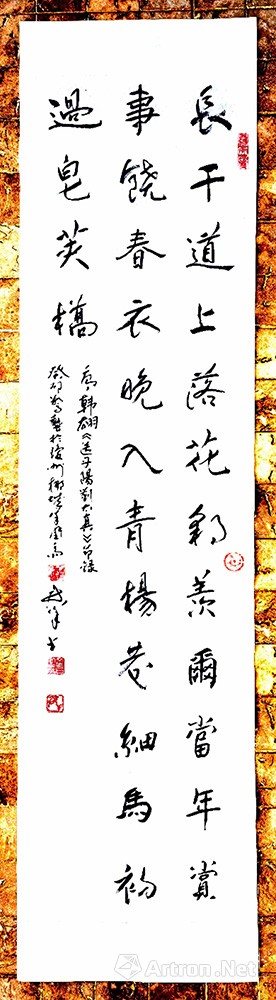 長干道上落花朝羨爾當年賞
事饒春衣晚入青楊巷細馬初
過皂莢橋
唐韩翃《送丹陽劉太真》節錄
癸卯
Artron.Net